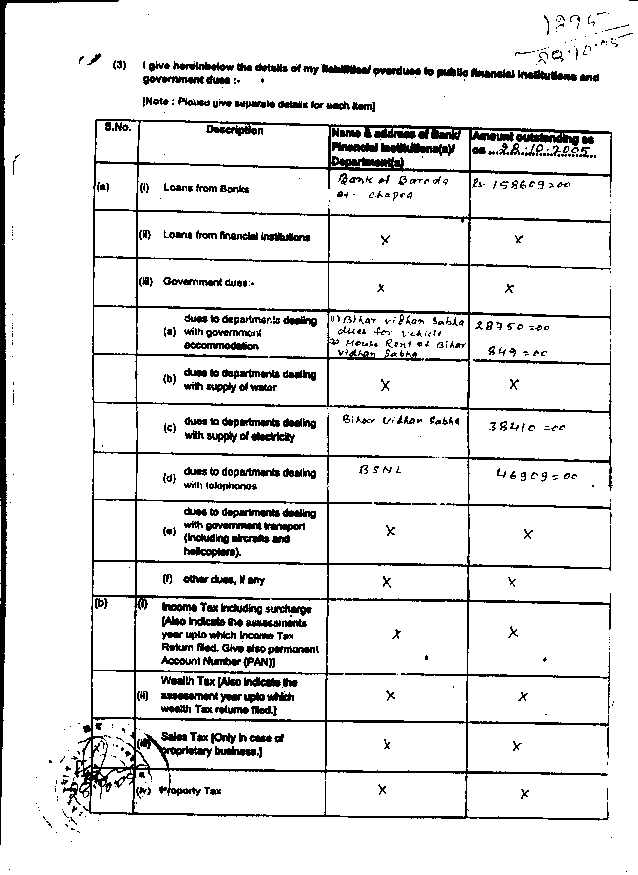 1295
28.10.05
(3) I give hereinbelow the details of my liabilities/ overdues to public financial institutions and
government dues :-
[Note : Please give separate details for each item]
S.No. Description Name & address of Bank/ Financial Institutions(s)/ Department(s) Amount outstanding as on ...28.10.2005...
(a) (i) Loans from Banks Bank of Baroda at- Chapra Rs. 158609=00
(ii) Loans from financial institutions X X
(iii) Government dues:- X X
(a) dues to departments dealing with government accommodation 1) Bihar vidhan Sabha dues for vehicle 2) House Rent of Bihar vidhan Sabha 28750=00 849=00
(b) dues to departments dealing with supply of water X X
(c) dues to departments dealing with supply of electricity Bihar Vidhan Sabha 38410=00
(d) dues to departments dealing with telephones BSNL 46909=00
(e) dues to departments dealing with government transport (including aircrafts and helicopters). X X
(f) other dues, if any X X
(b) (i) Income Tax including surcharge [Also indicate the assessments year upto which Income Tax Return filed. Give also permanent Account Number (PAN)] X X
(ii) Wealth Tax [Also indicate the assessment year upto which wealth Tax returns filed.] X X
(iii) Sales Tax [Only in case of proprietary business.] X X
(iv) Property Tax X X